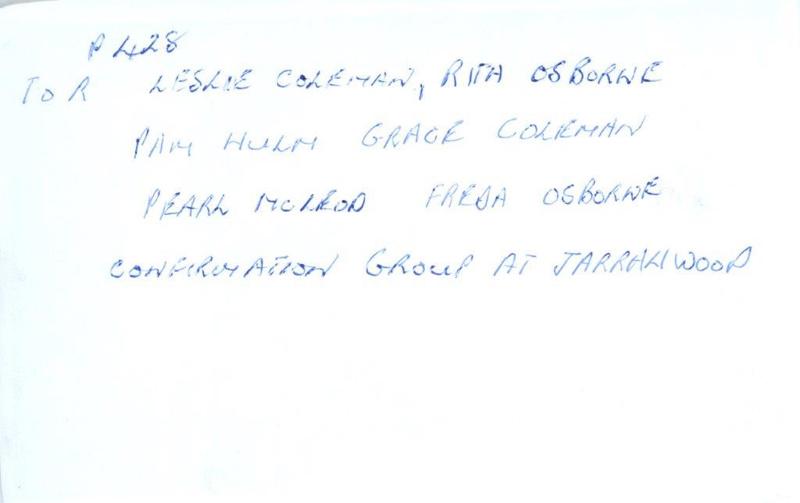 P428
TO R LESLIE COLEMAN, RITA OSBORNE
PAM HULM GRACE COLEMAN
PEARL MCLEOD FREDA OSBORNE
CONFIRMATION GROUP AT JARRAHWOOD